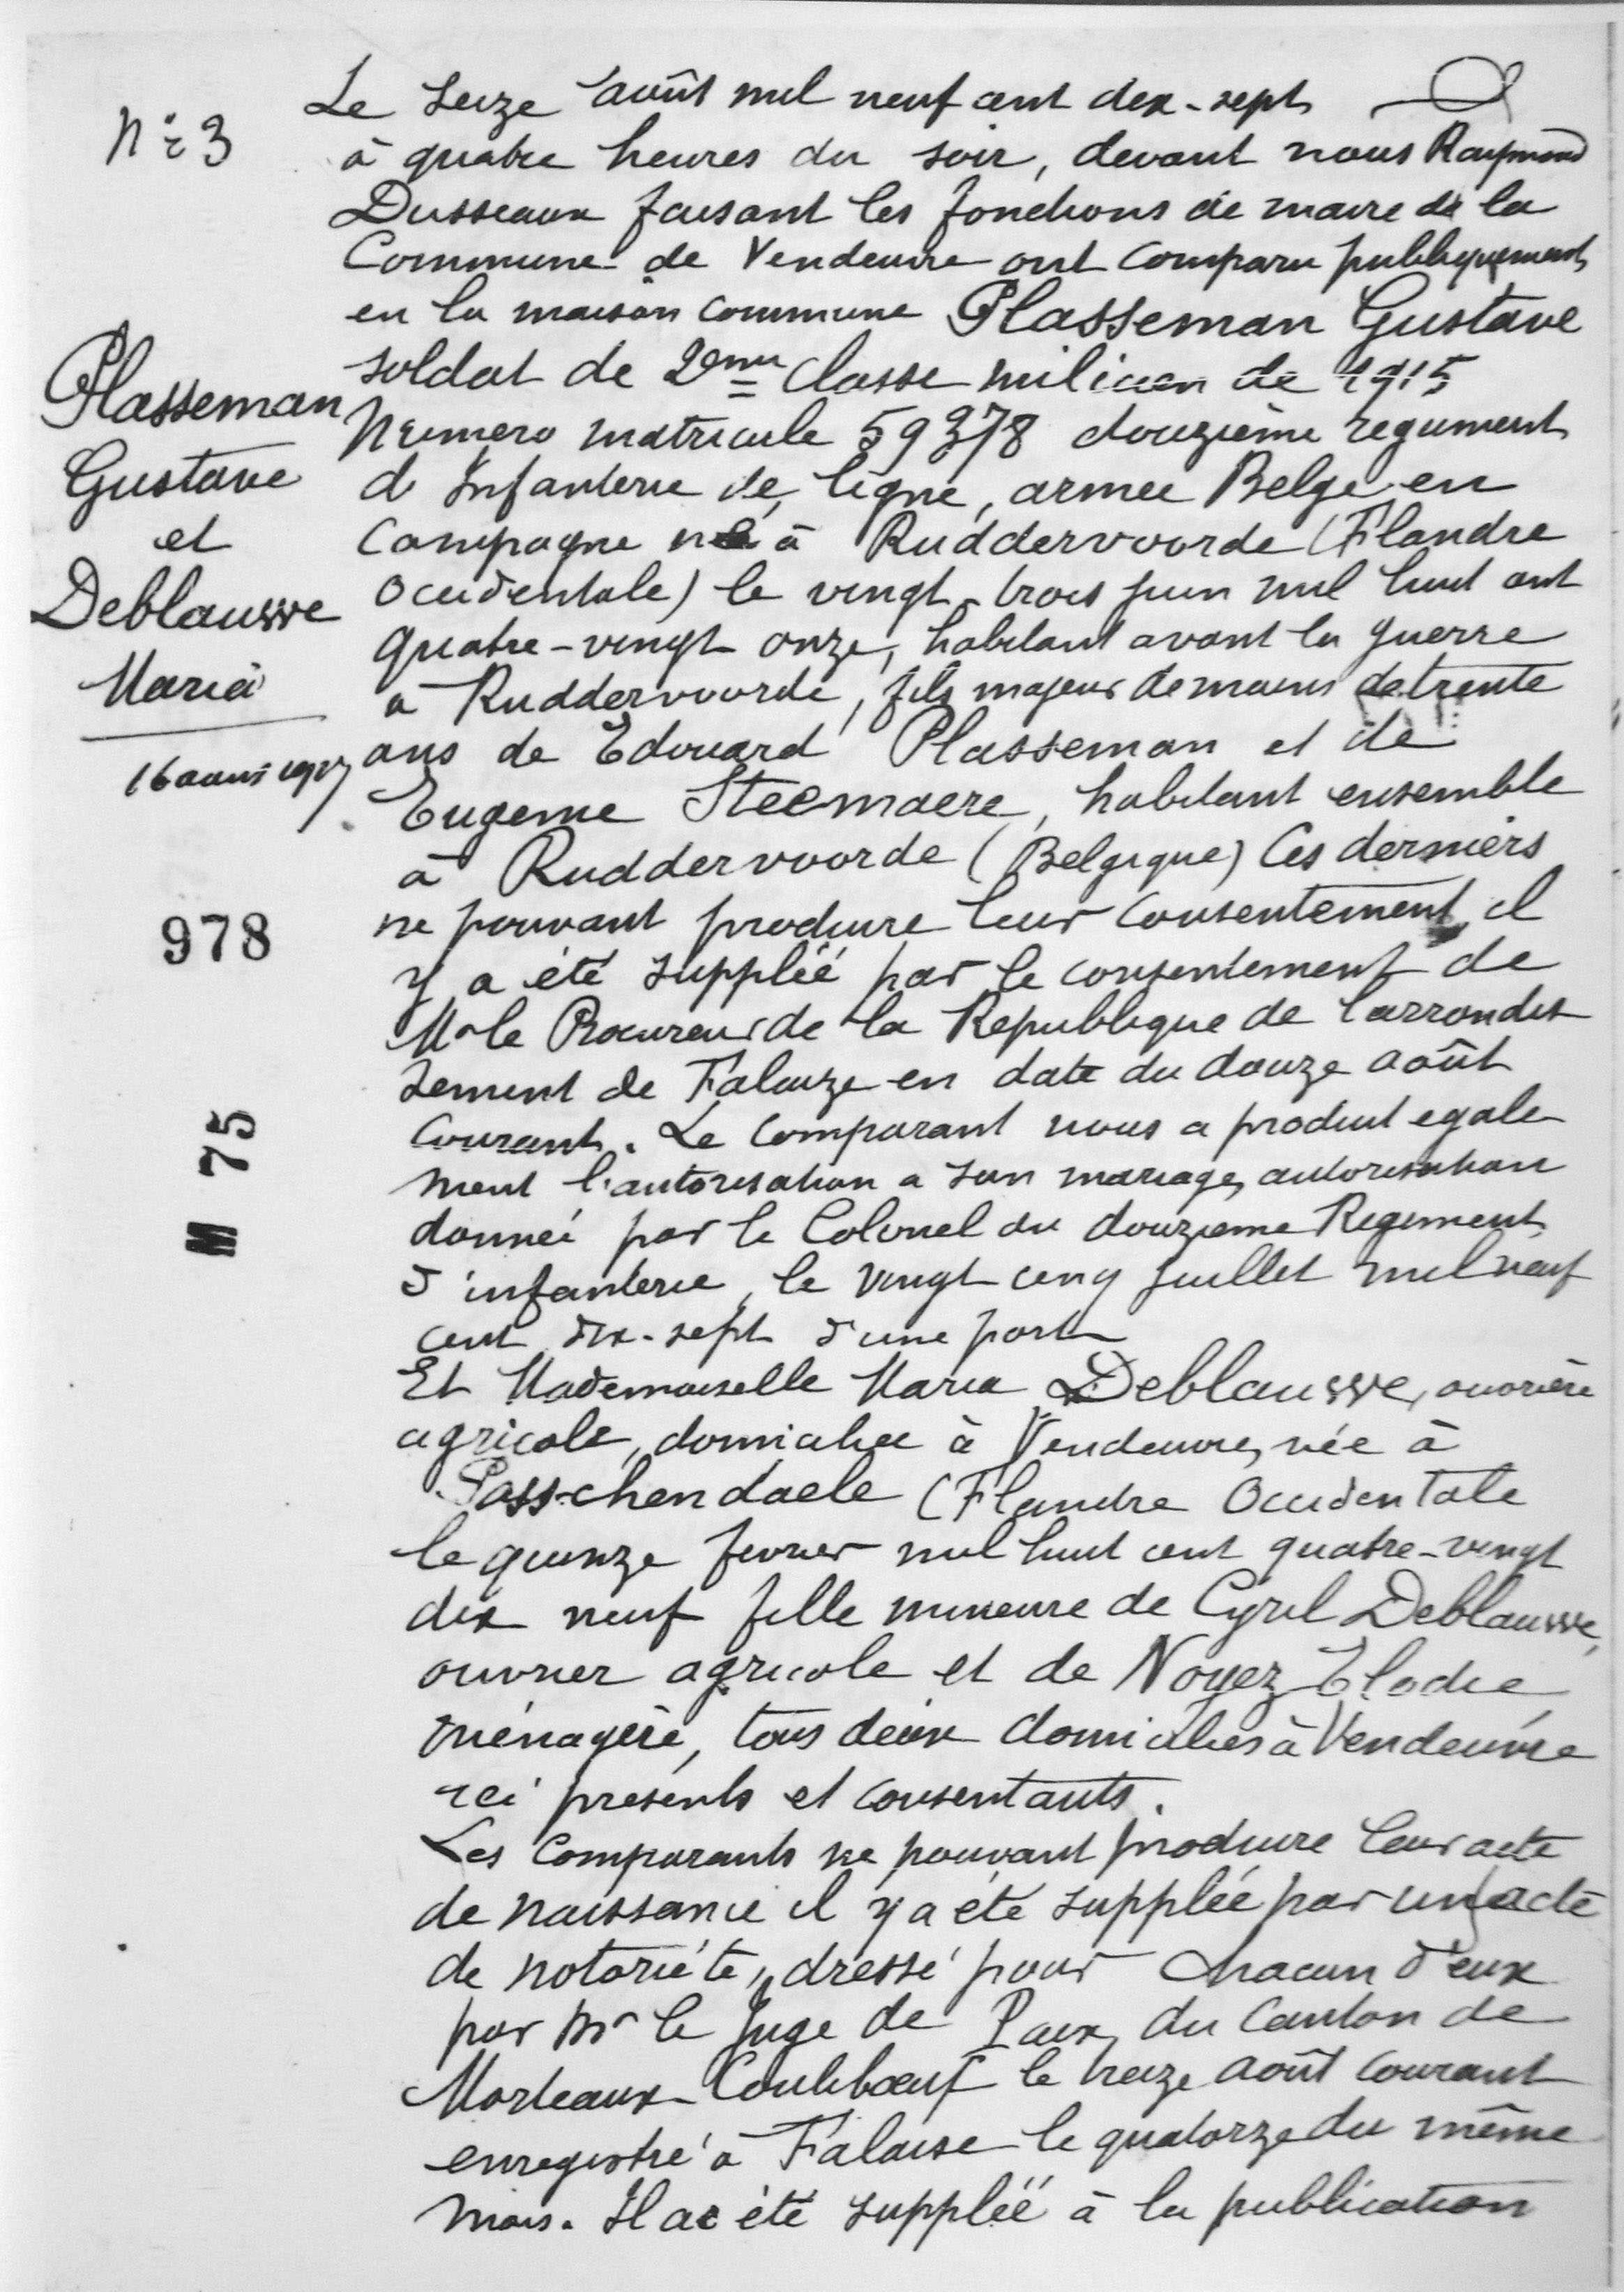 N° 3
Plasseman
Gustave
et
Deblauwe
Maria
16 août 1917
978
M 75
Le seize août mil neuf cent dix-sept
à quatre heures du soir, devant nous Raymond
Dusseaux faisant les fonctions de maire de la
Commune de Vendeuvre ont comparu publiquement
en la maison commune Plasseman Gustave
soldat de 2eme classe milicien de 1915
Numero matricule 59378 douzième regiment
d'Infanterie de ligne, armee Belge en
Campagne né à Ruddervoorde (Flandre
Occidentale) le vingt-trois juin mil huit cent
quatre-vingt onze, habitant avant la guerre
à Ruddervoorde, fils majeur de moins de trente
ans de Edouard Plasseman et de
Eugenie Steemaere, habitant ensemble
à Ruddervoorde (Belgique) Ces derniers
ne pouvant produire leur consentement, il
y a été suppléé par le consentement de
Mr le Procureur de la Republique de l'arrondis
sement de Falaize en date du douze août
Courant. Le comparant nous a produit egale
ment l'autorisation a son mariage, autorisation
donnée par le Colonel du douzieme Regiment
d'infanterie, le vingt cinq juillet mil neuf
cent dix-sept d'une part
Et Mademoiselle Maria Deblauwe, ouvrière
agricole, domiciliée à Vendeuvre, née à
Passchendaele (Flandre Occidentale
le quinze fevrier mil huit cent quatre-vingt
dix neuf fille mineure de Cyril Deblauwe,
ouvrier agricole et de Noyez Elodie
ménagère, tous deux domiciliés à Vendeuvre
ici présents et consentants.
Les Comparants ne pouvant produire leur acte
de naissance il y a été suppléé par un acte
de notoriété, dressé pour chacun d'eux
par Mr le Juge de Paix du Canton de
Morteaux-Coulibœuf le treize août courant
enregistré à Falaise le quatorze du même
mois. Il a été suppléé à la publication